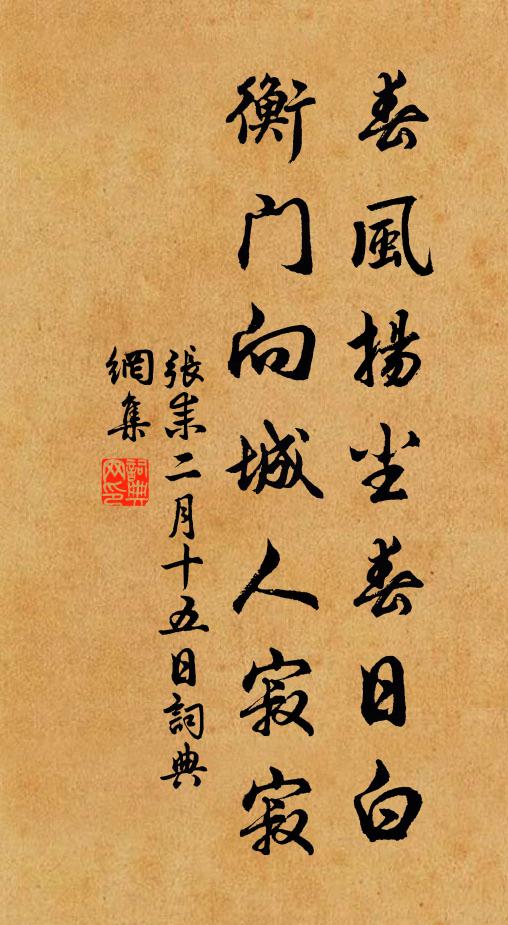 春風揚尘春日白
衡门向城人寂寂
張耒二月十五日詞典
網集
詞典
网印